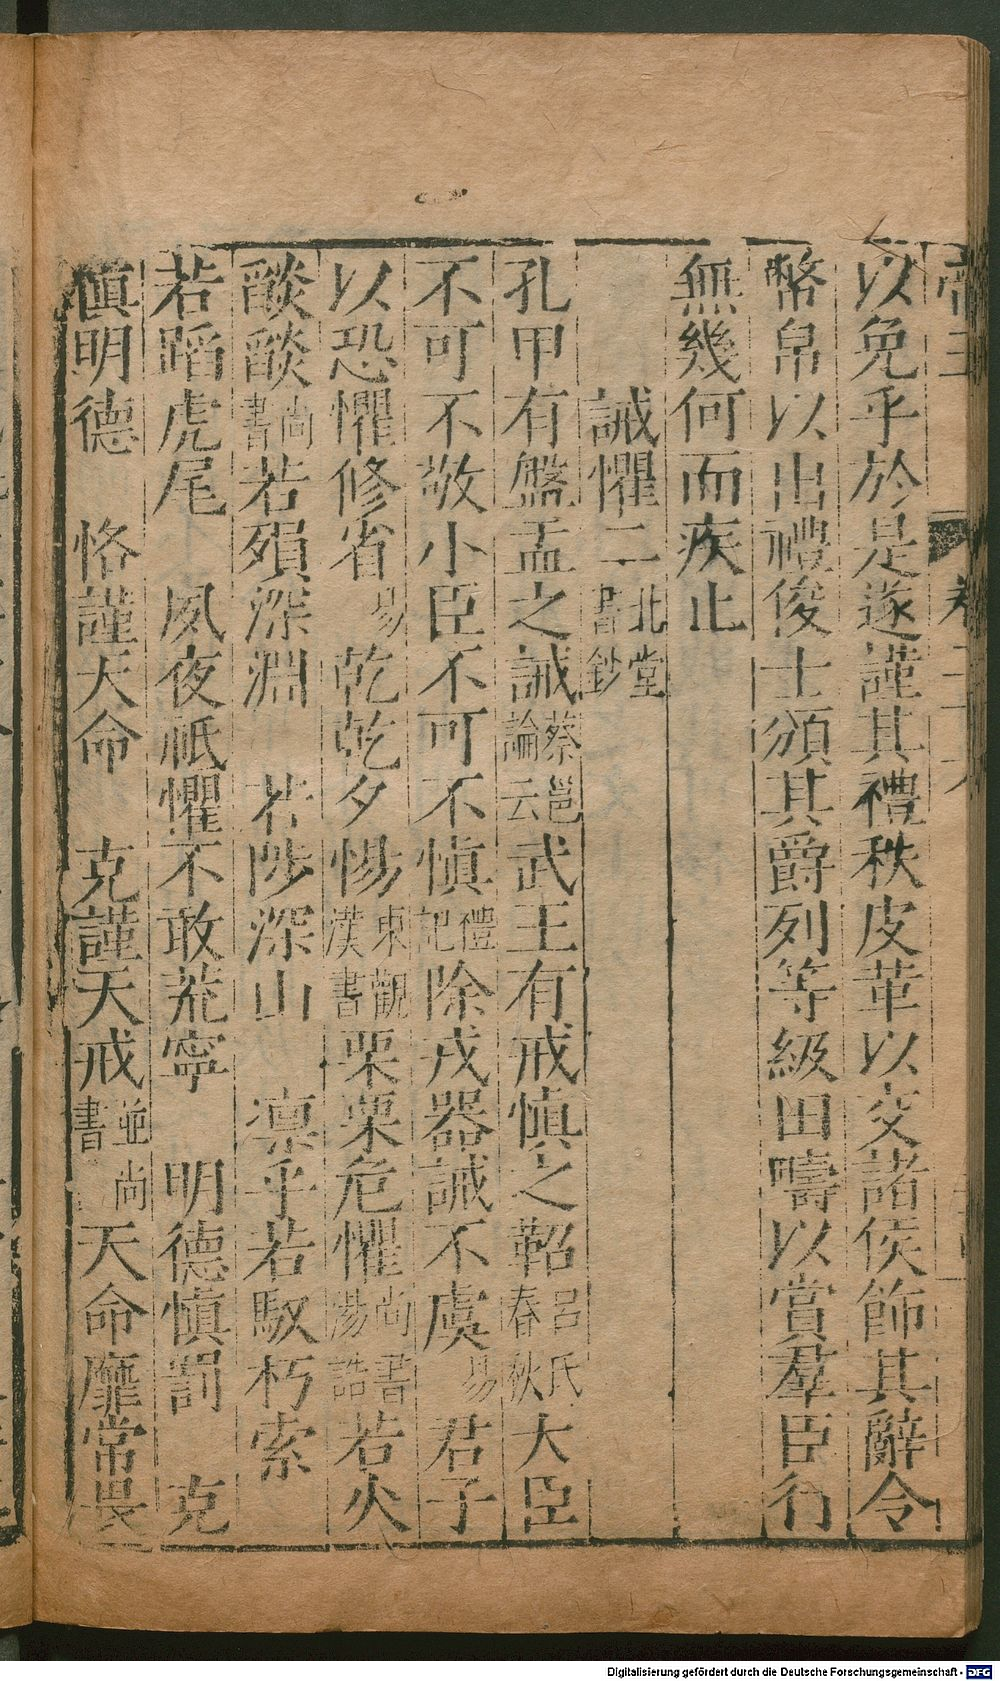 以免乎於是遂謹其禮秩皮革以交諸侯飾其辭令
幣帛以出禮俊士頒其爵列等級田疇以賞羣臣行
無幾何而疾止
誡懼二北堂書鈔
孔甲有盤盂之誡蔡邕論云武王有戒慎之鞀呂氏春秋大臣
不可不敬小臣不可不慎禮記除戎器誡不虞易君子
以恐懼修省易乾乾夕惕東觀漢書栗栗危懼尚書湯誥若火
燄燄尚書若殞深淵 若陟深山 凛乎若馭朽索
若蹈虎尾 夙夜祇懼不敢荒寧 明德慎罰 克
慎明德 恪謹天命 克謹天戒並尚書天命靡常畏
Digitalisierung gefördert durch die Deutsche Forschungsgemeinschaft - DFG